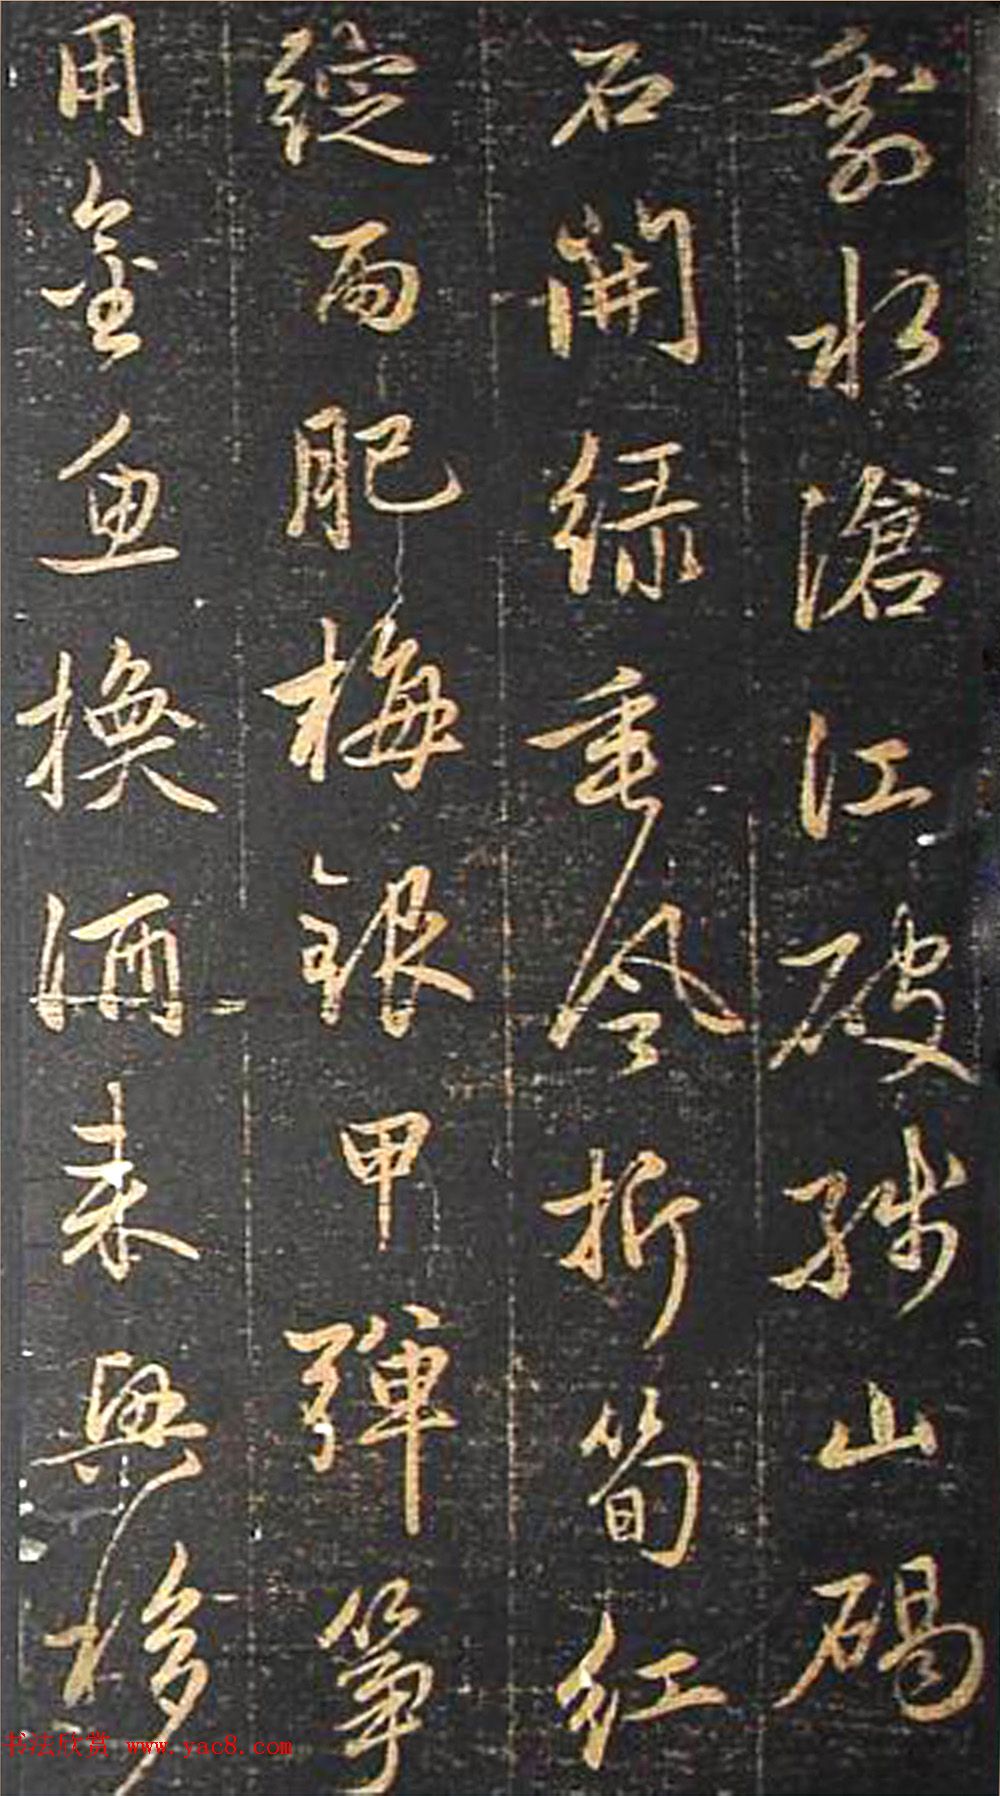 剩水滄江破殘山碣
石開緑垂風折筍紅
綻雨肥梅銀甲彈箏
用金魚換酒来興移
书法欣赏 www.yac8.com